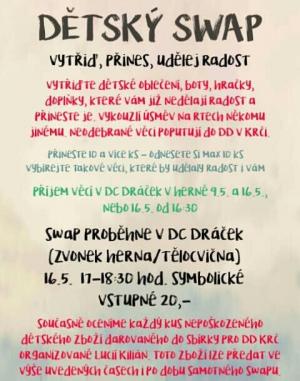 DĚTSKÝ SWAP
VYTŘIĎ, PŘINES, UDĚLEJ RADOST
VYTŘIĎTE DĚTSKÉ OBLEČENÍ, BOTY, HRAČKY,
DOPLŇKY, KTERÉ VÁM JIŽ NEDĚLAJÍ RADOST A
PŘINESTE JE. VYKOUZLÍ ÚSMĚV NA RTECH NĚKOMU
JINÉMU. NEODEBRANÉ VĚCI POPUTUJÍ DO DD V KRČI.
PŘINESTE 10 A VÍCE KS - ODNESETE SI MAX 10 KS
VYBÍREJTE TAKOVÉ VĚCI, KTERÉ BY UDĚLALY RADOST I VÁM
PŘÍJEM VĚCÍ V DC DRÁČEK V HERNĚ 9.5. A 16.5.,
NEBO 16.5. OD 16:30
SWAP PROBĚHNE V DC DRÁČEK
(ZVONEK HERNA/TĚLOCVIČNA)
16.5. 17-18:30 HOD. SYMBOLICKÉ
VSTUPNÉ 20,-
SOUČASNĚ OCENÍME KAŽDÝ KUS NEPOŠKOZENÉHO
DĚTSKÉHO ZBOŽÍ DAROVANÉHO DO SBÍRKY PRO DD KRČ
ORGANIZOVANÉ LUCIÍ KILIÁN. TOTO ZBOŽÍ LZE PŘEDAT VE
VÝŠE UVEDENÝCH ČASECH I PO DOBU SAMOTNÉHO SWAPU.